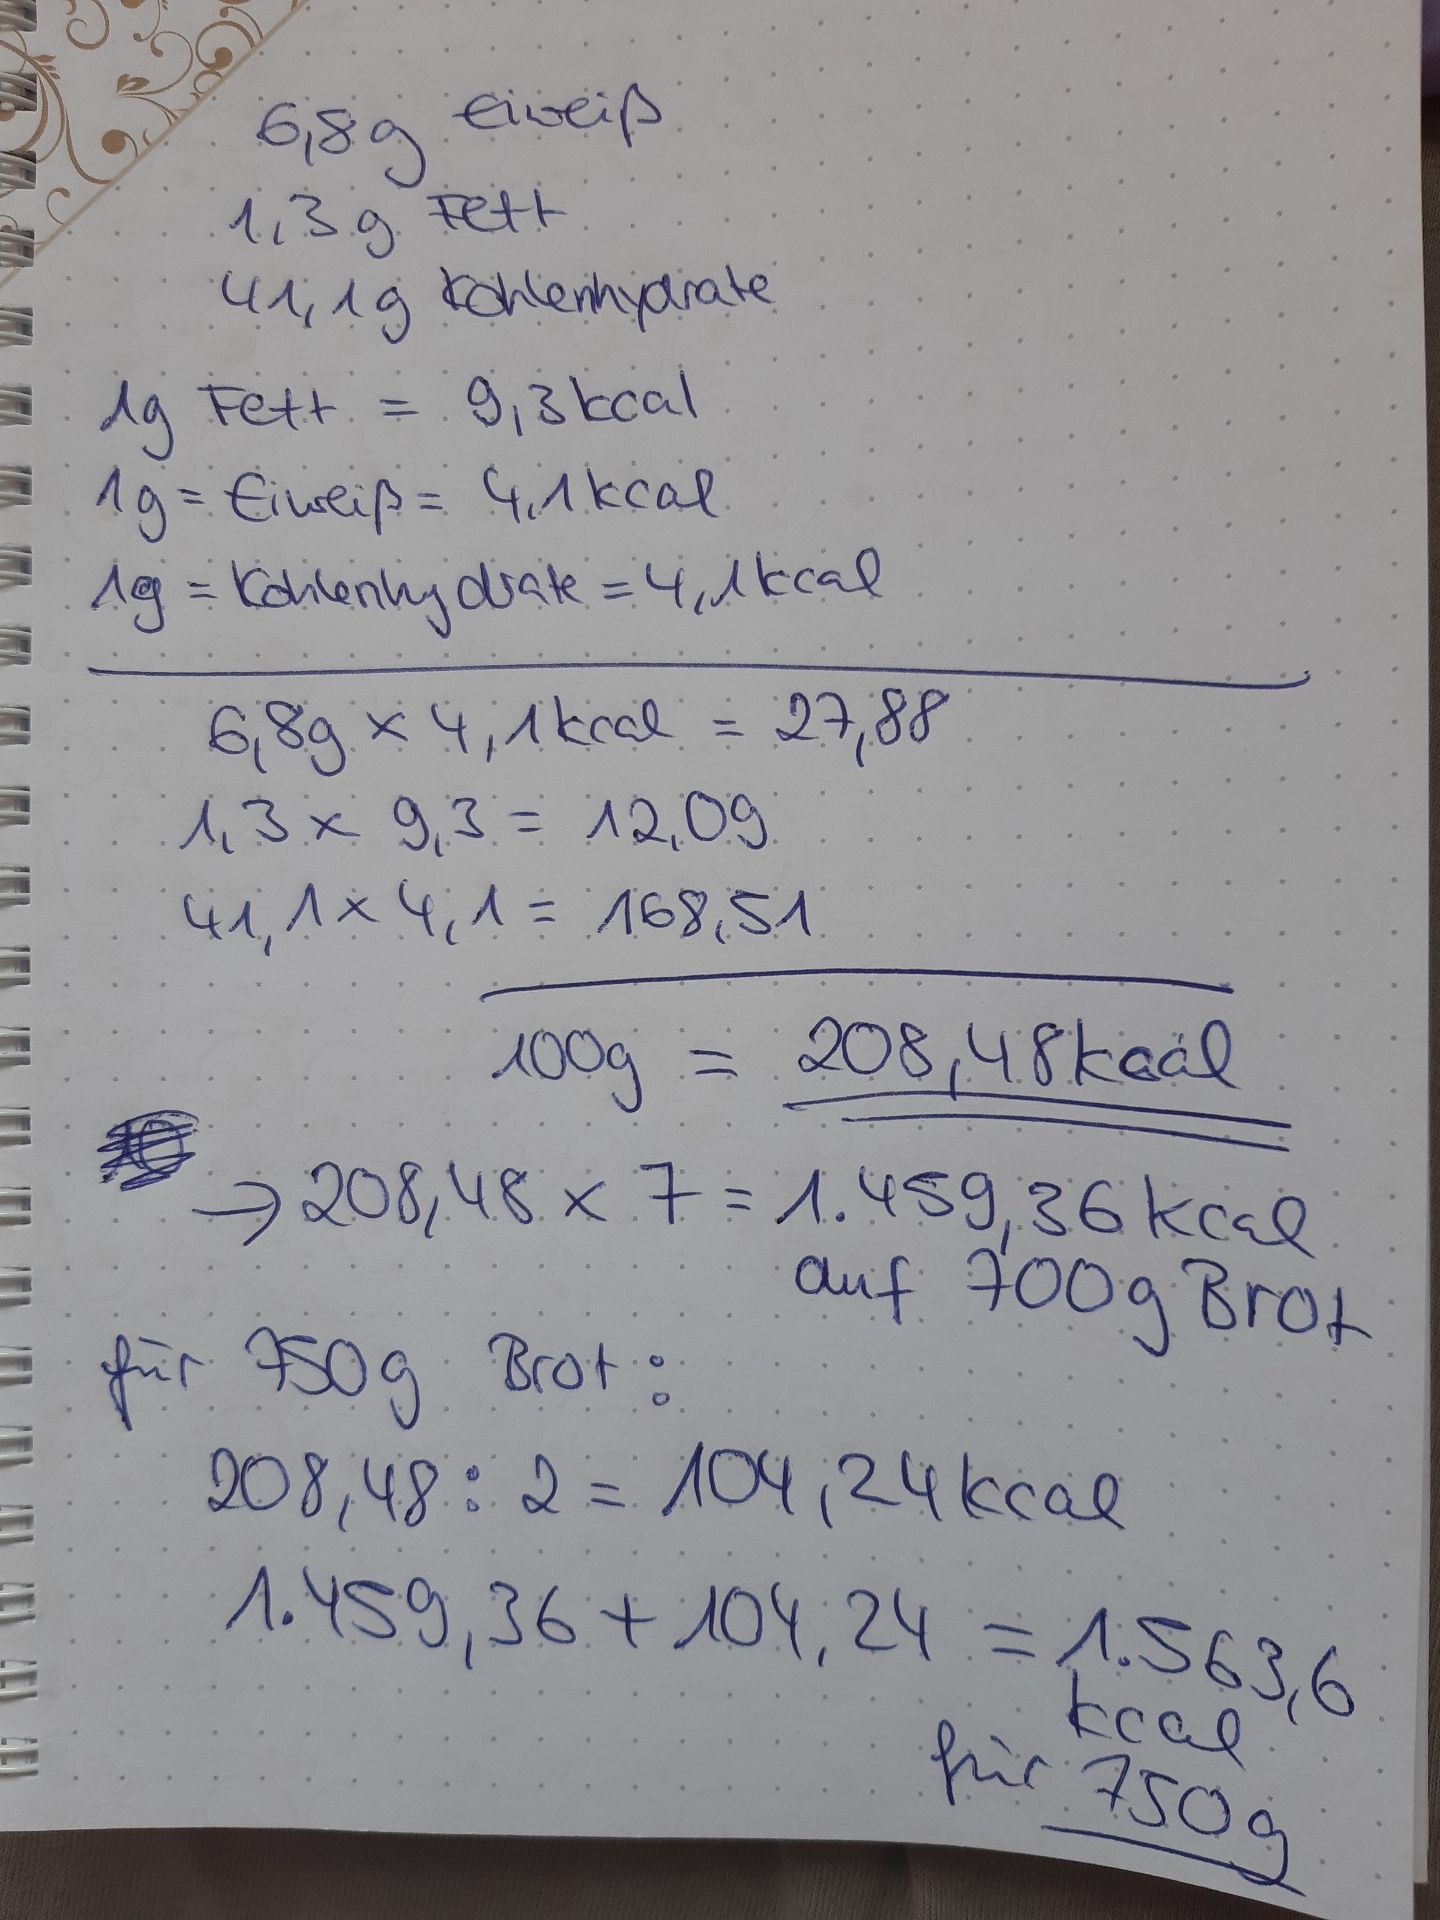 6,8g Eiweiß
1,3g Fett
41,1g Kohlenhydrate
1g Fett = 9,3kcal
1g = Eiweiß = 4,1kcal
1g = Kohlenhydrate = 4,1kcal
6,8g x 4,1kcal = 27,88
1,3 x 9,3 = 12,09
41,1 x 4,1 = 168,51
100g = 208,48kcal
→ 208,48 x 7 = 1.459,36 kcal
auf 700g Brot
für 750g Brot:
208,48 : 2 = 104,24kcal
1.459,36 + 104,24 = 1.563,6
kcal
für 750g